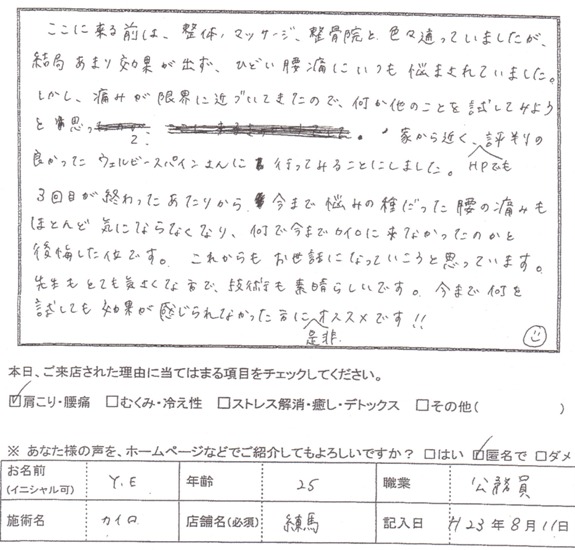 ここに来る前は、整体、マッサージ、整骨院と、色々通っていましたが、
結局あまり効果が出ず、ひどい腰痛にいつも悩まされていました。
しかし、痛みが限界に近づいてきたので、何か他のことを試してみよう
と思っ
家から近く、HPでも評判の
良かったウェルビースパインさんに行ってみることにしました。
3回目が終わったあたりから、今まで悩みの種だった腰の痛みも
ほとんど気にならなくなり、何で今までカイロに来なかったのかと
後悔した位です。これからもお世話になっていこうと思っています。
先生もとても気さくな方で、技術も素晴らしいです。今まで何を
試しても効果が感じられなかった方に是非オススメです!!
本日、ご来店された理由に当てはまる項目をチェックしてください。
☑肩こり・腰痛 □むくみ・冷え性 □ストレス解消・癒し・デトックス □その他( )
※ あなた様の声を、ホームページなどでご紹介してもよろしいですか? □はい ☑匿名で □ダメ
お名前(イニシャル可) Y.E 年齢 25 職業 公務員
施術名 カイロ 店舗名(必須) 練馬 記入日 H23年8月11日